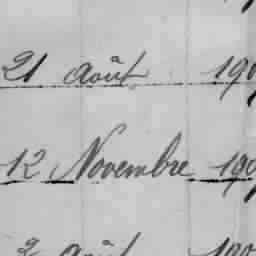 21 Août 190
12 Novembre 190
2 Août 190